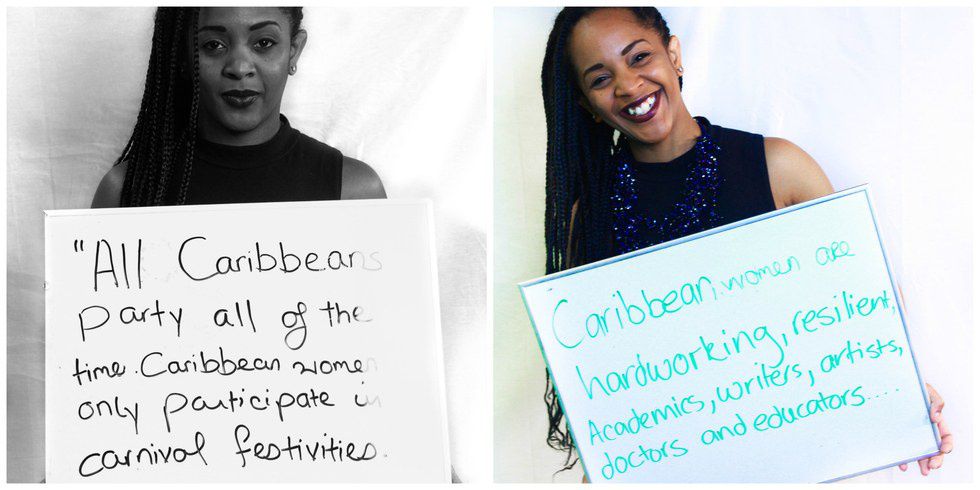 "All Caribbeans
party all of the
time. Caribbean women
only participate in
carnival festivities.
Caribbean women are
hardworking, resilient,
Academics, writers, artists,
doctors and educators...